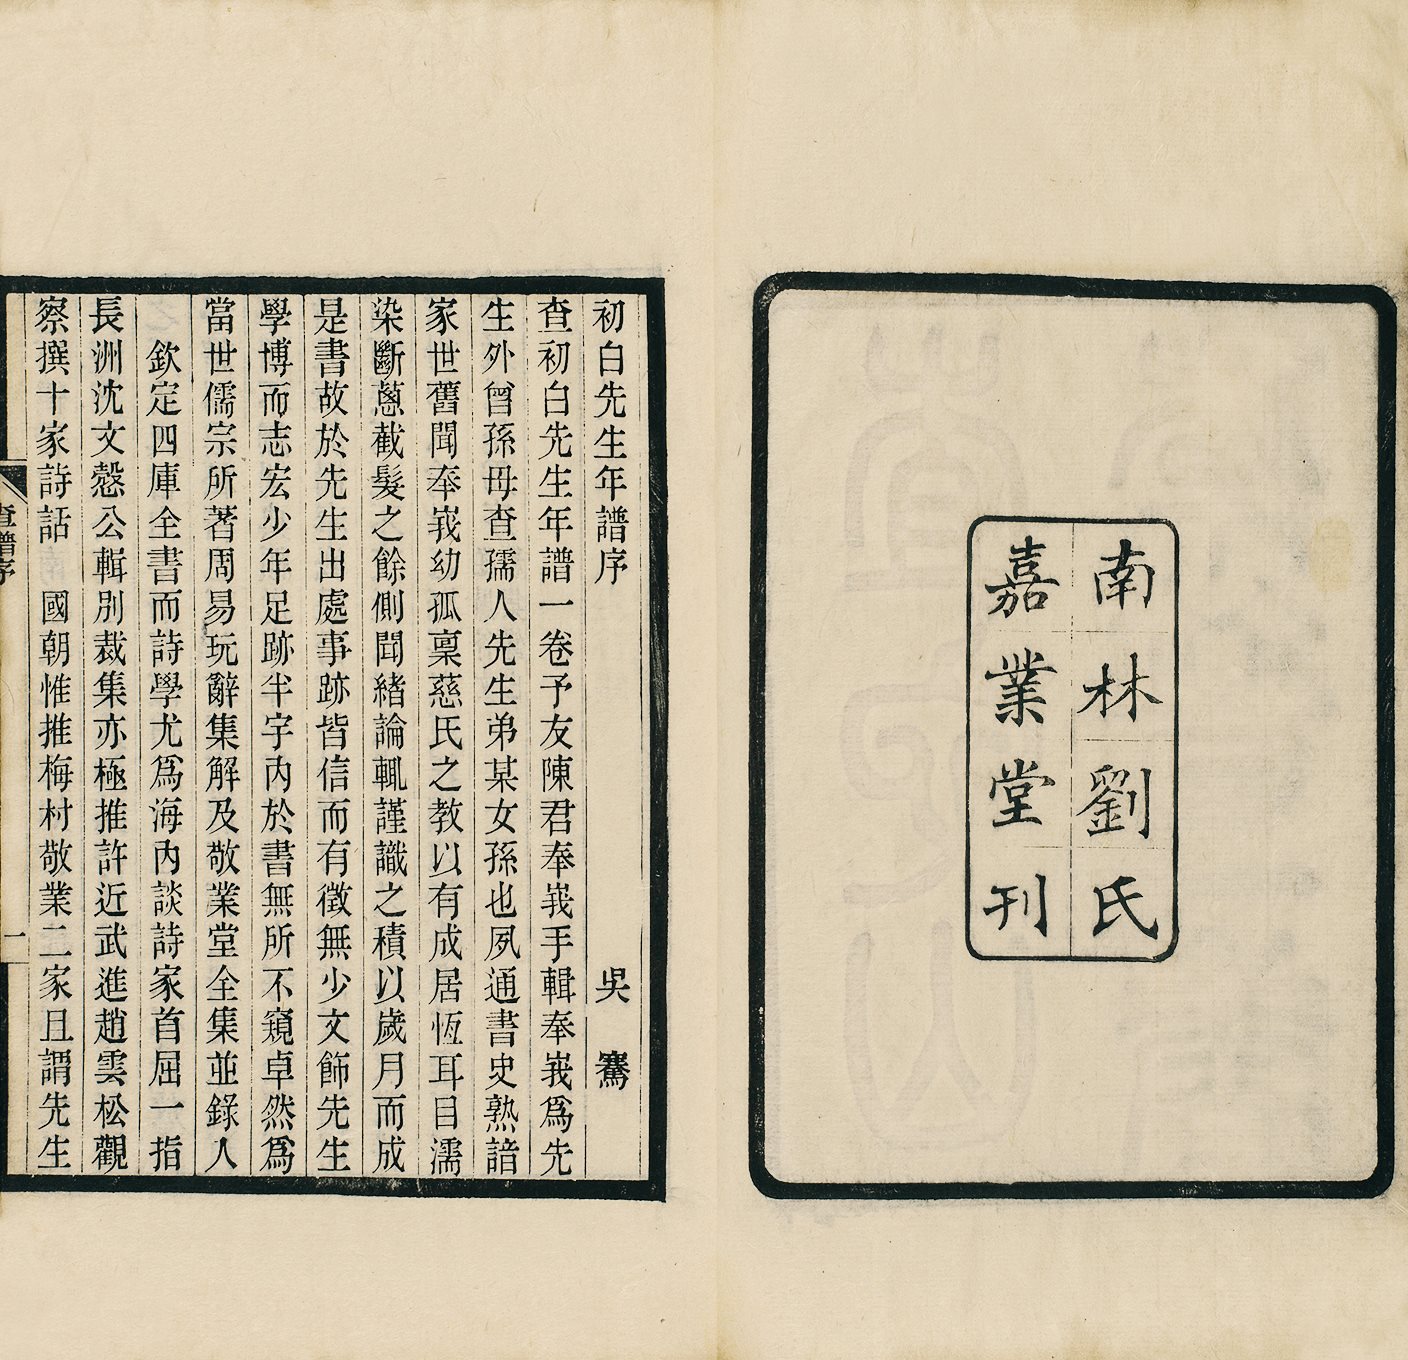 南林劉氏
嘉業堂刊
初白先生年譜序
吳　騫
查初白先生年譜一卷予友陳君奉峩手輯奉峩爲先
生外曾孫母查孺人先生弟某女孫也夙通書史熟諳
家世舊聞奉峩幼孤稟慈氏之教以有成居恆耳目濡
染斷蔥截髮之餘側聞緒論輒謹識之積以歲月而成
是書故於先生出處事跡皆信而有徵無少文飾先生
學博而志宏少年足跡半宇內於書無所不窺卓然爲
當世儒宗所著周易玩辭集解及敬業堂全集並錄入
欽定四庫全書而詩學尤爲海內談詩家首屈一指
長洲沈文慤公輯別裁集亦極推許近武進趙雲松觀
察撰十家詩話　國朝惟推梅村敬業二家且謂先生
查譜序
一